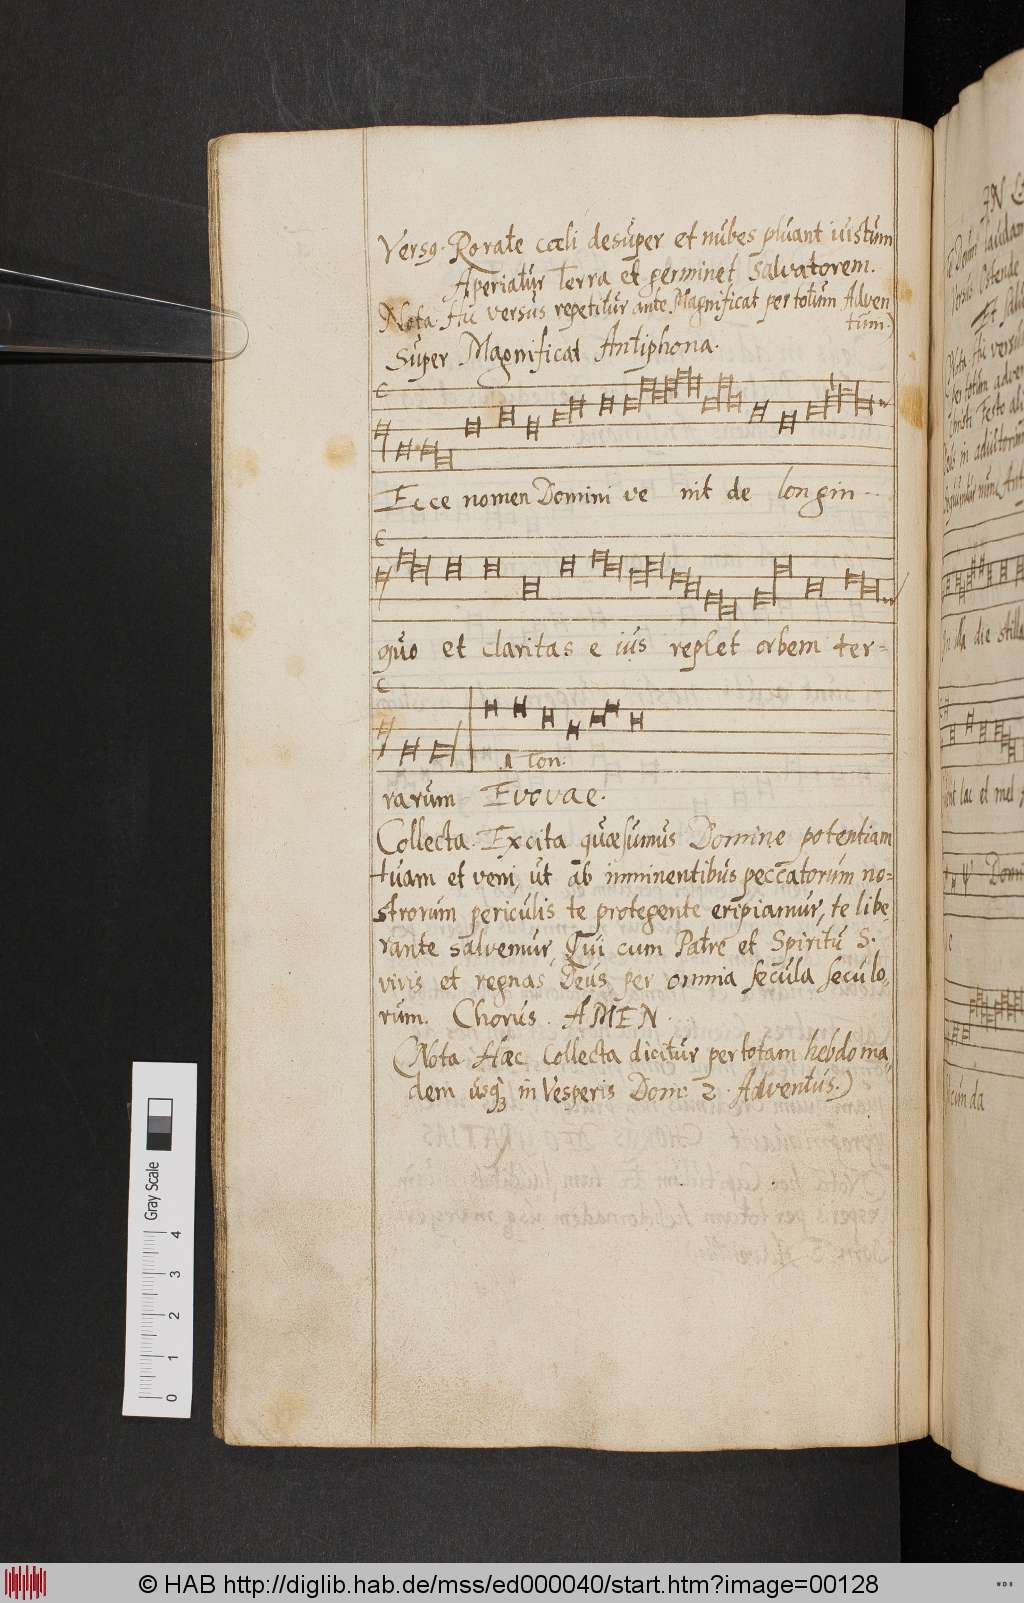 Versq. Rorate cœli desuper et nubes pluant iustum
Aperiatur Terra et germinet Salvatorem.
Nota Hic versus repetitur ante Magnificat per totum Adven
tum.)
Super Magnificat Antiphona.
Ecce nomen Domini ve nit de longin
quo et claritas e ius replet orbem ter=
1 Ton.
rarum Evovae.
Collecta. Excita quæsumus Domine potentiam
tuam et veni, ut ab imminentibus peccatorum no=
strorum periculis te protegente eripiamur, te libe,
rante salvemur, Qui cum Patre et Spiritu S.
vivis et regnas Deus per omnia secula seculo,
rum. Chorus. AMEN.
(Nota Hæc Collecta dicitur per totam hebdoma,
dem usq; in Vesperis Dom: 2. Adventus.)
IN
laudam
Versus Ostende
Et
Nota Hic versus
per totum adven
Christi Festo
in adiutorium
nunc Ant
In illa die stilla
lac et mel
Domi
cun da
Gray Scale
4
3
2
1
0
© HAB http://diglib.hab.de/mss/ed000040/start.htm?image=00128